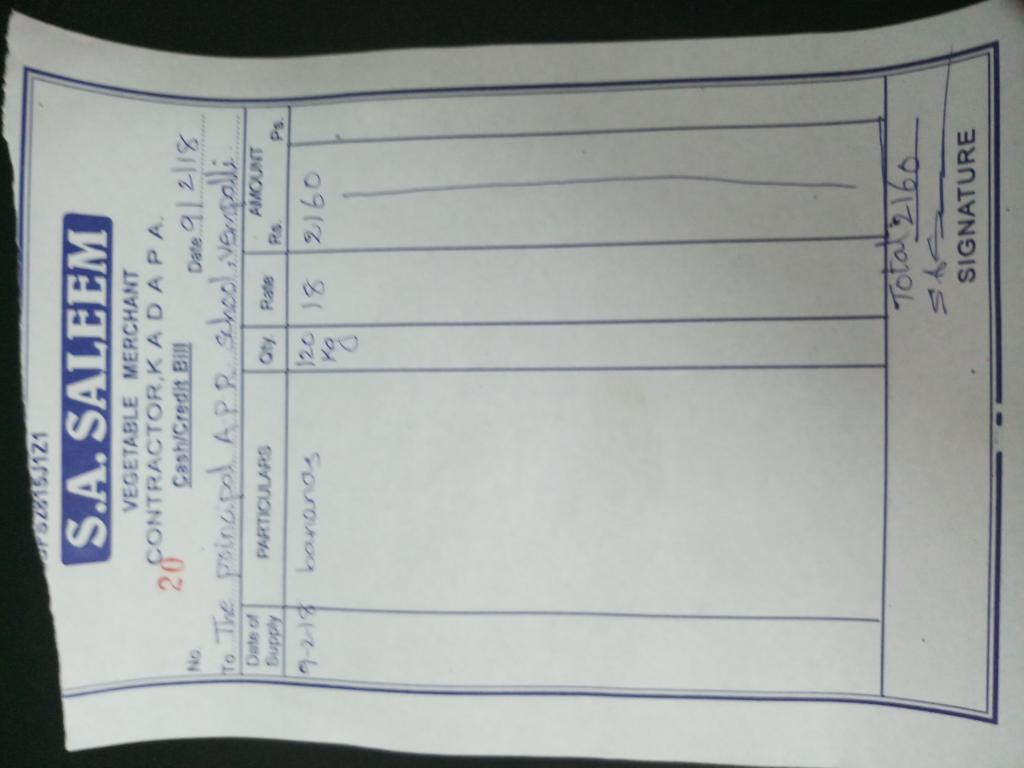 S.A. SALEEM
VEGETABLE MERCHANT
CONTRACTOR, K A D A P A.
Cash/Credit Bill
No. 20 Date 9/2/18
To The principal A.P.R. school, vempalli
Date of Supply PARTICULARS Qty. Rate AMOUNT Rs. Ps.
9-2-18 bananas 120 Kg 18 2160
Total 2160
SIGNATURE